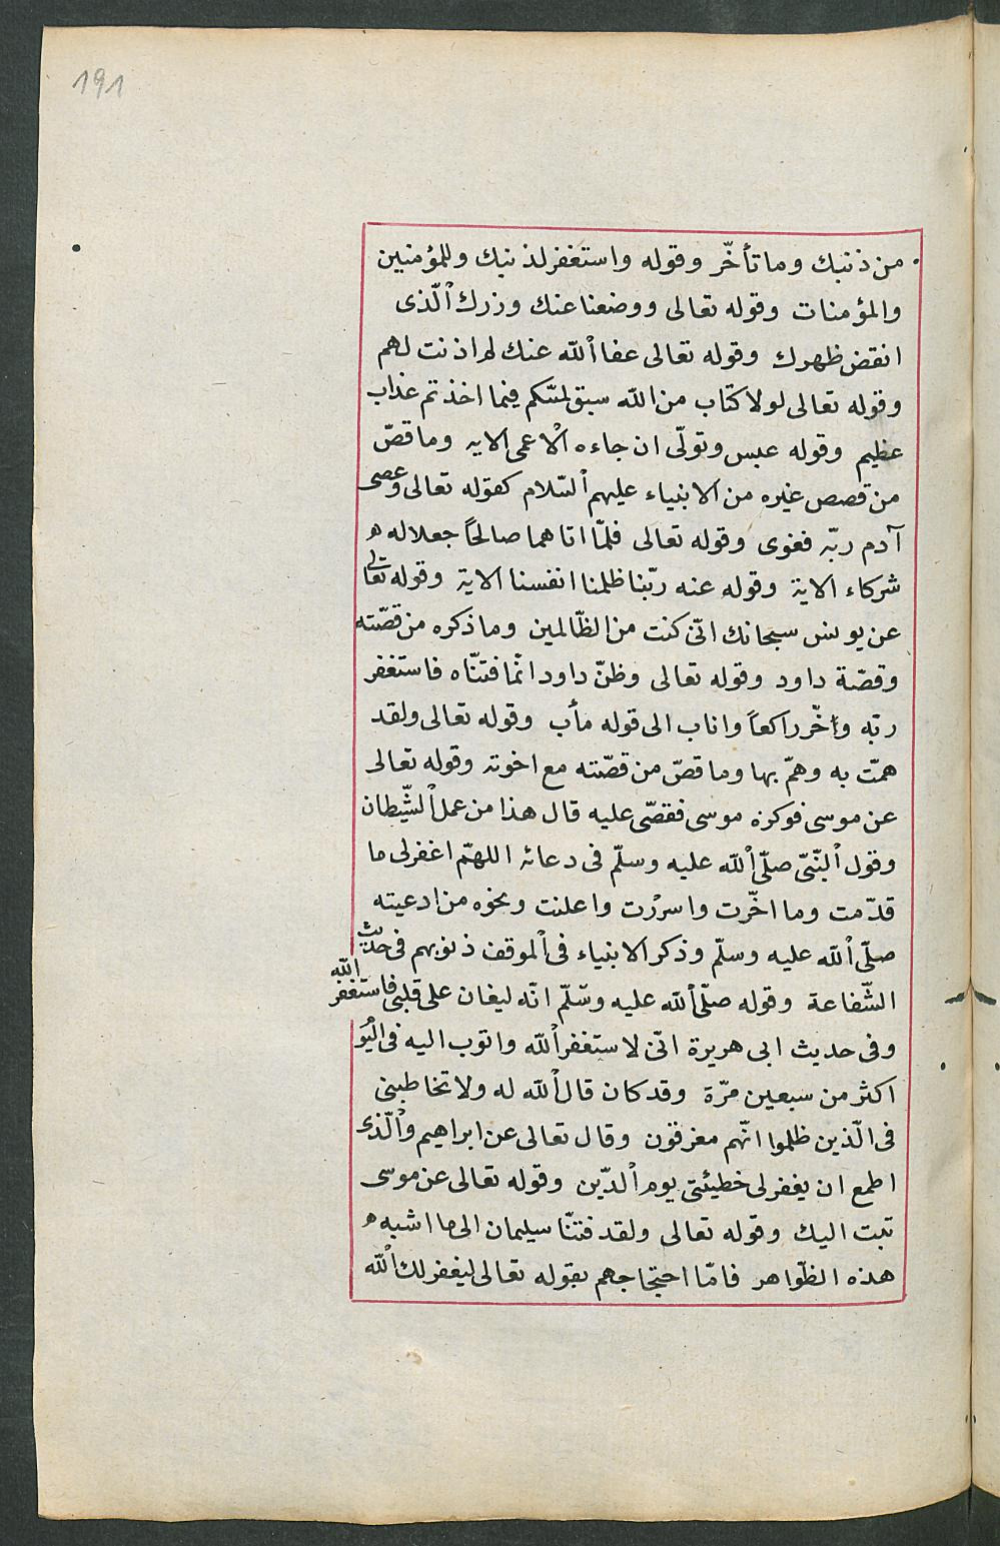 191
من ذنبك وما تأخّر وقوله واستغفر لذنبك وللمؤمنين
والمؤمنات وقوله تعالى ووضعنا عنك وزرك الّذى
انقض ظهرك وقوله تعالى عفا الله عنك لم اذنت لهم
وقوله تعالى لولا كتاب من الله سبق لمسّكم فيما اخذتم عذاب
عظيم وقوله عبس وتولّى ان جاءه الاعمى الايه وما قصّ
من قصص غيره من الانبياء عليهم السّلام كقوله تعالى وعصى
آدم ربّه فغوى وقوله تعالى فلمّا اتاهما صالحًا جعلا له
شركاء الاية وقوله عنه ربّنا ظلمنا انفسنا الاية وقوله تعالى
عن يونس سبحانك انّى كنت من الظّالمين وما ذكره من قصّته
وقصّة داود وقوله تعالى وظنّ داود انّما فتنّاه فاستغفر
ربّه وخّر راكعاً واناب الى قوله مأب وقوله تعالى ولقد
همّت به وهمّ بها وما قصّ من قصّته مع اخوته وقوله تعالى
عن موسى فوكزه موسى فقضى عليه قال هذا من عمل الشّيطان
وقول النّبىّ صلّى الله عليه وسلّم فى دعائه اللهمّ اغفرلى ما
قدّمت وما اخّرت واسررت واعلنت ونحوه من ادعيته
صلّى الله عليه وسلّم وذكر الانبياء فى الموقف ذنوبهم فى حديث
الشّفاعة وقوله صلّى الله عليه وسّلّم انّه ليغان على قلبى فاستغفر الله
وفى حديث ابى هريرة انّى لاستغفر الله واتوب اليه فى اليو
اكثر من سبعين مرّة وقد كان قال الله له ولا تخاطبنى
فى الّذين ظلموا انّهم مغرقون وقال تعالى عن ابراهيم والّذى
اطمع ان يغفر لى خطيئتى يوم الدّين وقوله تعالى عن موسى
تبت اليك وقوله تعالى ولقد فتنّا سيلمان الى ما اشبه
هذه الظّواهر فامّا احتجاجهم بقوله تعالى ليغفر لك الله